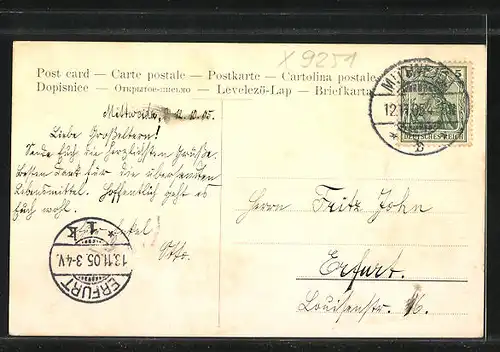 X 9251
Post card — Carte postale — Postkarte — Cartolina postale
Dopisnice — Открытое письмо — Levelező-Lap — Briefkarte
Mittweida, 12.10.05.
Liebe Großeltern!
Sende Euch die herzlichsten Grüße.
Besten Dank für die übersandten
Lebensmittel. Hoffentlich geht es
Euch wohl.
Euer Enkel
Otto.
MITTWEIDA
12.11.05
* c *
5
DEUTSCHES REICH
Herrn Fritz John
Erfurt.
Louisenstr. 16.
* 1 k
13.11.05. 3-4 V.
ERFURT